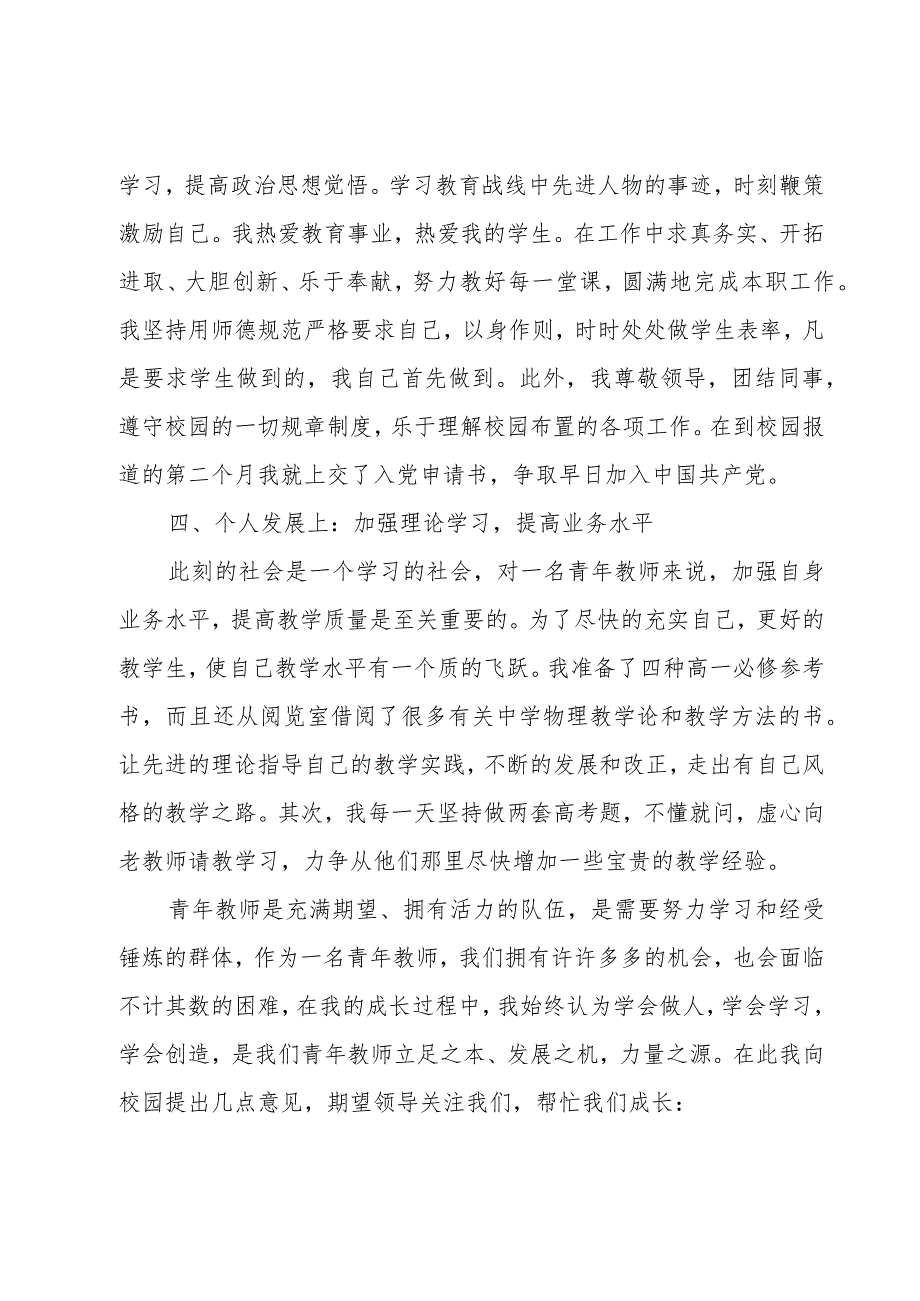 学习，提高政治思想觉悟。学习教育战线中先进人物的事迹，时刻鞭策
激励自己。我热爱教育事业，热爱我的学生。在工作中求真务实、开拓
进取、大胆创新、乐于奉献，努力教好每一堂课，圆满地完成本职工作。
我坚持用师德规范严格要求自己，以身作则，时时处处做学生表率，凡
是要求学生做到的，我自己首先做到。此外，我尊敬领导，团结同事，
遵守校园的一切规章制度，乐于理解校园布置的各项工作。在到校园报
道的第二个月我就上交了入党申请书，争取早日加入中国共产党。
四、个人发展上：加强理论学习，提高业务水平
此刻的社会是一个学习的社会，对一名青年教师来说，加强自身
业务水平，提高教学质量是至关重要的。为了尽快的充实自己，更好的
教学生，使自己教学水平有一个质的飞跃。我准备了四种高一必修参考
书，而且还从阅览室借阅了很多有关中学物理教学论和教学方法的书。
让先进的理论指导自己的教学实践，不断的发展和改正，走出有自己风
格的教学之路。其次，我每一天坚持做两套高考题，不懂就问，虚心向
老教师请教学习，力争从他们那里尽快增加一些宝贵的教学经验。
青年教师是充满期望、拥有活力的队伍，是需要努力学习和经受
锤炼的群体，作为一名青年教师，我们拥有许许多多的机会，也会面临
不计其数的困难，在我的成长过程中，我始终认为学会做人，学会学习，
学会创造，是我们青年教师立足之本、发展之机，力量之源。在此我向
校园提出几点意见，期望领导关注我们，帮忙我们成长：